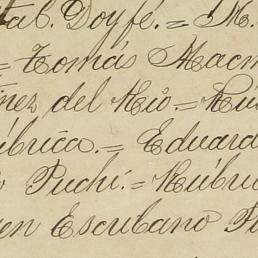 tal. Doy fé.= M.
= Tomás Mac
nez del Rio.= Rú
úbrica.= Eduard
Puchi.= Rúbri
en Escribano P